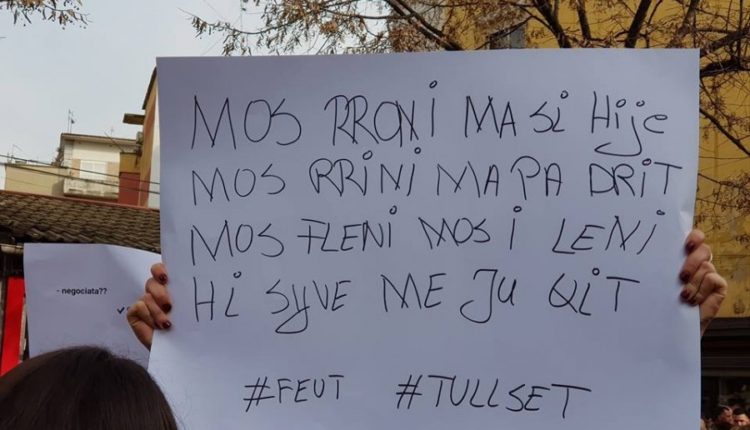 MOS RRONI MA SI Hije
MOS RRINI MA PA DRIT
MOS FLENI MOS I LENI
HI SYVE ME JU QIT
#FEUT #TULLSET
- negociata??